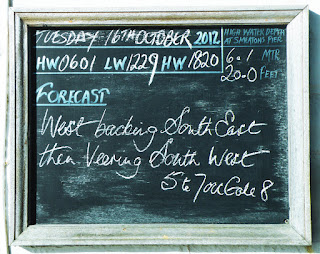 TUESDAY 16TH OCTOBER 2012
HIGH WATER DEPTH
AT SMEATONS PIER
HW 0601 LW 1229 HW 1820
6.1 MTR
20.0 FEET
FORECAST
West backing South East
then Veering South West
5 to 7 occ Gale 8